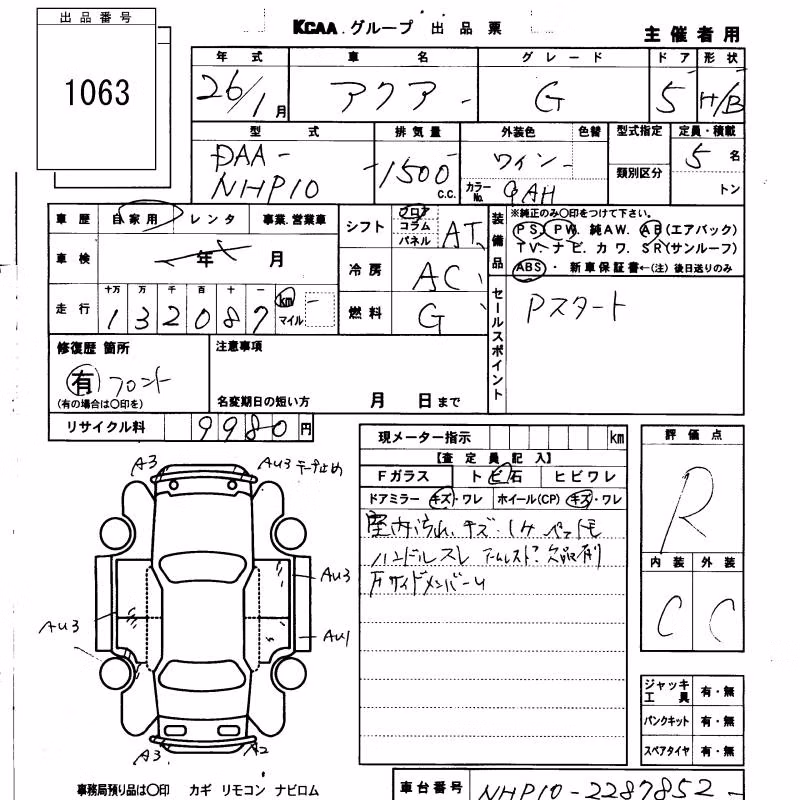 出品番号
1063
KCAA.グループ 出品票
主催者用
年式 車名 グレード ドア 形状
26/1月 アクア G 5 H/B
型式 排気量 外装色 色替 型式指定 定員・積載
DAA-NHP10 1500 c.c. ワイン カラーNo. 9AH 類別区分 5名 トン
車歴 自家用 レンタ 事業.営業車
シフト フロア コラム パネル AT
装備品 ※純正のみ○印をつけて下さい。
PS. PW. 純AW. AB(エアバック)
TV. ナビ. カワ. SR(サンルーフ)
ABS・新車保証書←(注)後日送りのみ
車検 年 月
冷房 AC
走行 十万 万 千 百 十 一
132087 km マイル
燃料 G
セールスポイント
Pスタート
修復歴 箇所
有 フロント
(有の場合は○印を)
注意事項
名変期日の短い方 月 日まで
リサイクル料 9980円
現メーター指示 km
【査定員記入】
Fガラス トビ石 ヒビワレ
ドアミラー キズ・ワレ ホイール(CP) キズ・ワレ
室内汚れ.キズ・
ハンドルスレ 欠品有
FサイドメンバーU
評価点
R
内装 外装
C C
ジャッキ 工具 有・無
パンクキット 有・無
スペアタイヤ 有・無
A3 AU3 テープ止め
AU3
AU3 AU1
A3 A2
事務局預り品は○印 カギ リモコン ナビロム
車台番号 NHP10-2287852